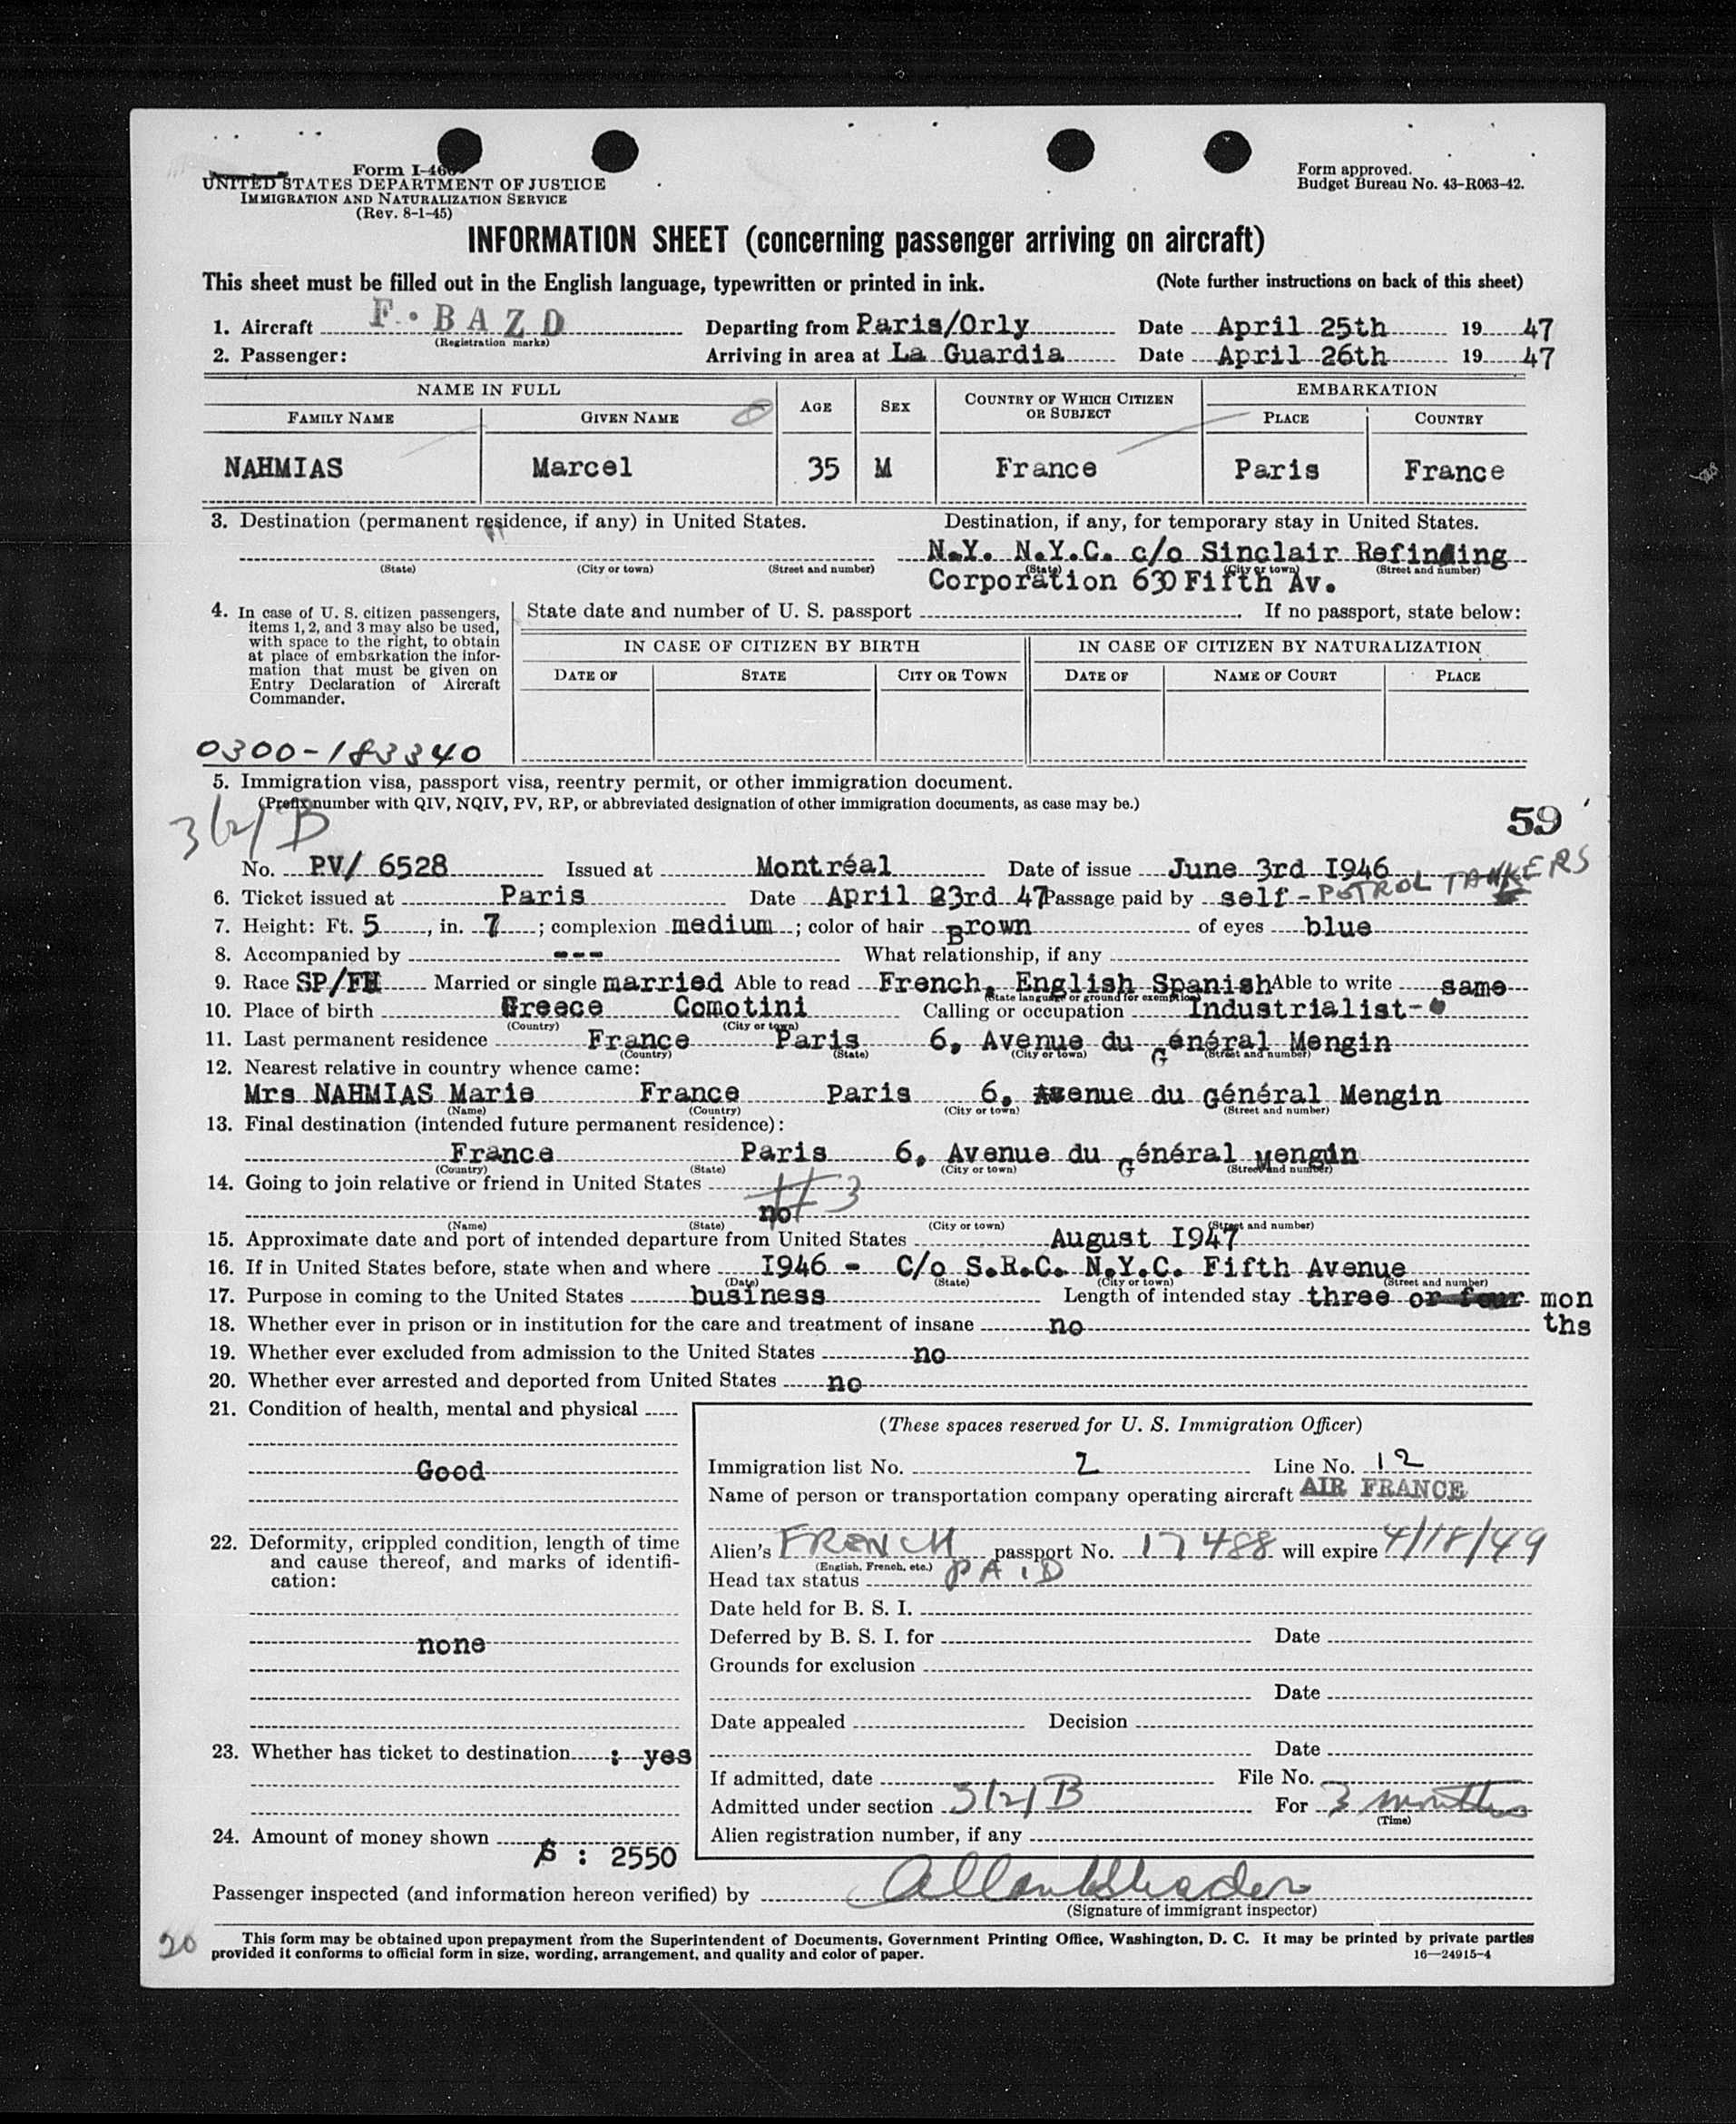 Form I-466
UNITED STATES DEPARTMENT OF JUSTICE
IMMIGRATION AND NATURALIZATION SERVICE
(Rev. 8-1-45)
Form approved.
Budget Bureau No. 43-R063-42.
INFORMATION SHEET (concerning passenger arriving on aircraft)
This sheet must be filled out in the English language, typewritten or printed in ink. (Note further instructions on back of this sheet)
1. Aircraft F. BAZD Departing from Paris/Orly Date April 25th 19 47
(Registration marks)
2. Passenger: Arriving in area at La Guardia Date April 26th 19 47
NAME IN FULL AGE SEX COUNTRY OF WHICH CITIZEN OR SUBJECT EMBARKATION
FAMILY NAME GIVEN NAME PLACE COUNTRY
NAHMIAS Marcel 35 M France Paris France
3. Destination (permanent residence, if any) in United States. Destination, if any, for temporary stay in United States.
N.Y. N.Y.C. c/o Sinclair Refinding
(State) (City or town) (Street and number) (State) (City or town) (Street and number)
Corporation 630 Fifth Av.
4. In case of U. S. citizen passengers,
items 1, 2, and 3 may also be used,
with space to the right, to obtain
at place of embarkation the infor-
mation that must be given on
Entry Declaration of Aircraft
Commander.
State date and number of U. S. passport If no passport, state below:
IN CASE OF CITIZEN BY BIRTH IN CASE OF CITIZEN BY NATURALIZATION
DATE OF STATE CITY OR TOWN DATE OF NAME OF COURT PLACE
0300-183340
5. Immigration visa, passport visa, reentry permit, or other immigration document.
(Prefix number with QIV, NQIV, PV, RP, or abbreviated designation of other immigration documents, as case may be.)
3/2/B
59
No. PV/ 6528 Issued at Montréal Date of issue June 3rd I946
6. Ticket issued at Paris Date April 23rd 47 Passage paid by self - PETROL TANKERS
7. Height: Ft. 5, in. 7; complexion medium; color of hair Brown of eyes blue
8. Accompanied by --- What relationship, if any
9. Race SP/FH Married or single married Able to read French, English Spanish Able to write same
(State language or ground for exemption)
10. Place of birth Greece Comotini Calling or occupation Industrialist-
(Country) (City or town)
11. Last permanent residence France Paris 6, Avenue du Général Mengin
(Country) (State) (City or town) (Street and number)
12. Nearest relative in country whence came:
Mrs NAHMIAS Marie France Paris 6, Avenue du Général Mengin
(Name) (Country) (City or town) (Street and number)
13. Final destination (intended future permanent residence):
France Paris 6, Avenue du Général Mengin
(Country) (State) (City or town) (Street and number)
14. Going to join relative or friend in United States
#3
no
(Name) (State) (City or town) (Street and number)
15. Approximate date and port of intended departure from United States August I947
16. If in United States before, state when and where I946 - C/o S.R.C. N.Y.C. Fifth Avenue
(Date) (State) (City or town) (Street and number)
17. Purpose in coming to the United States business Length of intended stay three or four mon
ths
18. Whether ever in prison or in institution for the care and treatment of insane no
19. Whether ever excluded from admission to the United States no
20. Whether ever arrested and deported from United States no
21. Condition of health, mental and physical
Good
22. Deformity, crippled condition, length of time
and cause thereof, and marks of identifi-
cation:
none
23. Whether has ticket to destination : yes
24. Amount of money shown $ : 2550
(These spaces reserved for U. S. Immigration Officer)
Immigration list No. 2 Line No. 12
Name of person or transportation company operating aircraft AIR FRANCE
Alien's FRENCH passport No. 17488 will expire 4/18/49
(English, French, etc.)
Head tax status PAID
Date held for B. S. I.
Deferred by B. S. I. for Date
Grounds for exclusion
Date
Date appealed Decision
Date
If admitted, date File No.
Admitted under section 3/2/B For 3 months
(Time)
Alien registration number, if any
Passenger inspected (and information hereon verified) by
(Signature of immigrant inspector)
20
This form may be obtained upon prepayment from the Superintendent of Documents, Government Printing Office, Washington, D. C. It may be printed by private parties
provided it conforms to official form in size, wording, arrangement, and quality and color of paper. 16—24915-4